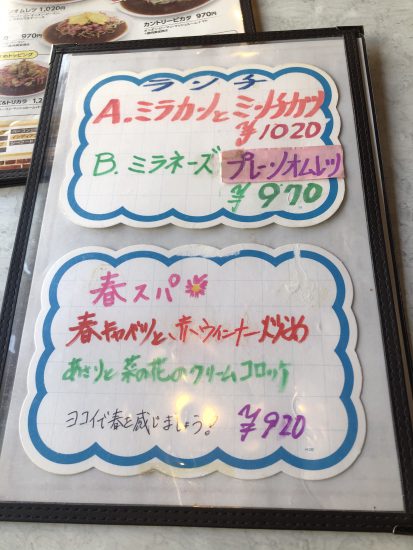 オムレツ 1,020円
970円
カントリーピカタ 970円
ランチ
A.ミラカンとミンチカツ
¥1020
B.ミラネーズ プレーンオムレツ
¥970
春スパ
春キャベツと、赤ウィンナー炒め
あさりと菜の花のクリームコロッケ
ヨコイで春を感じましょう! ¥920